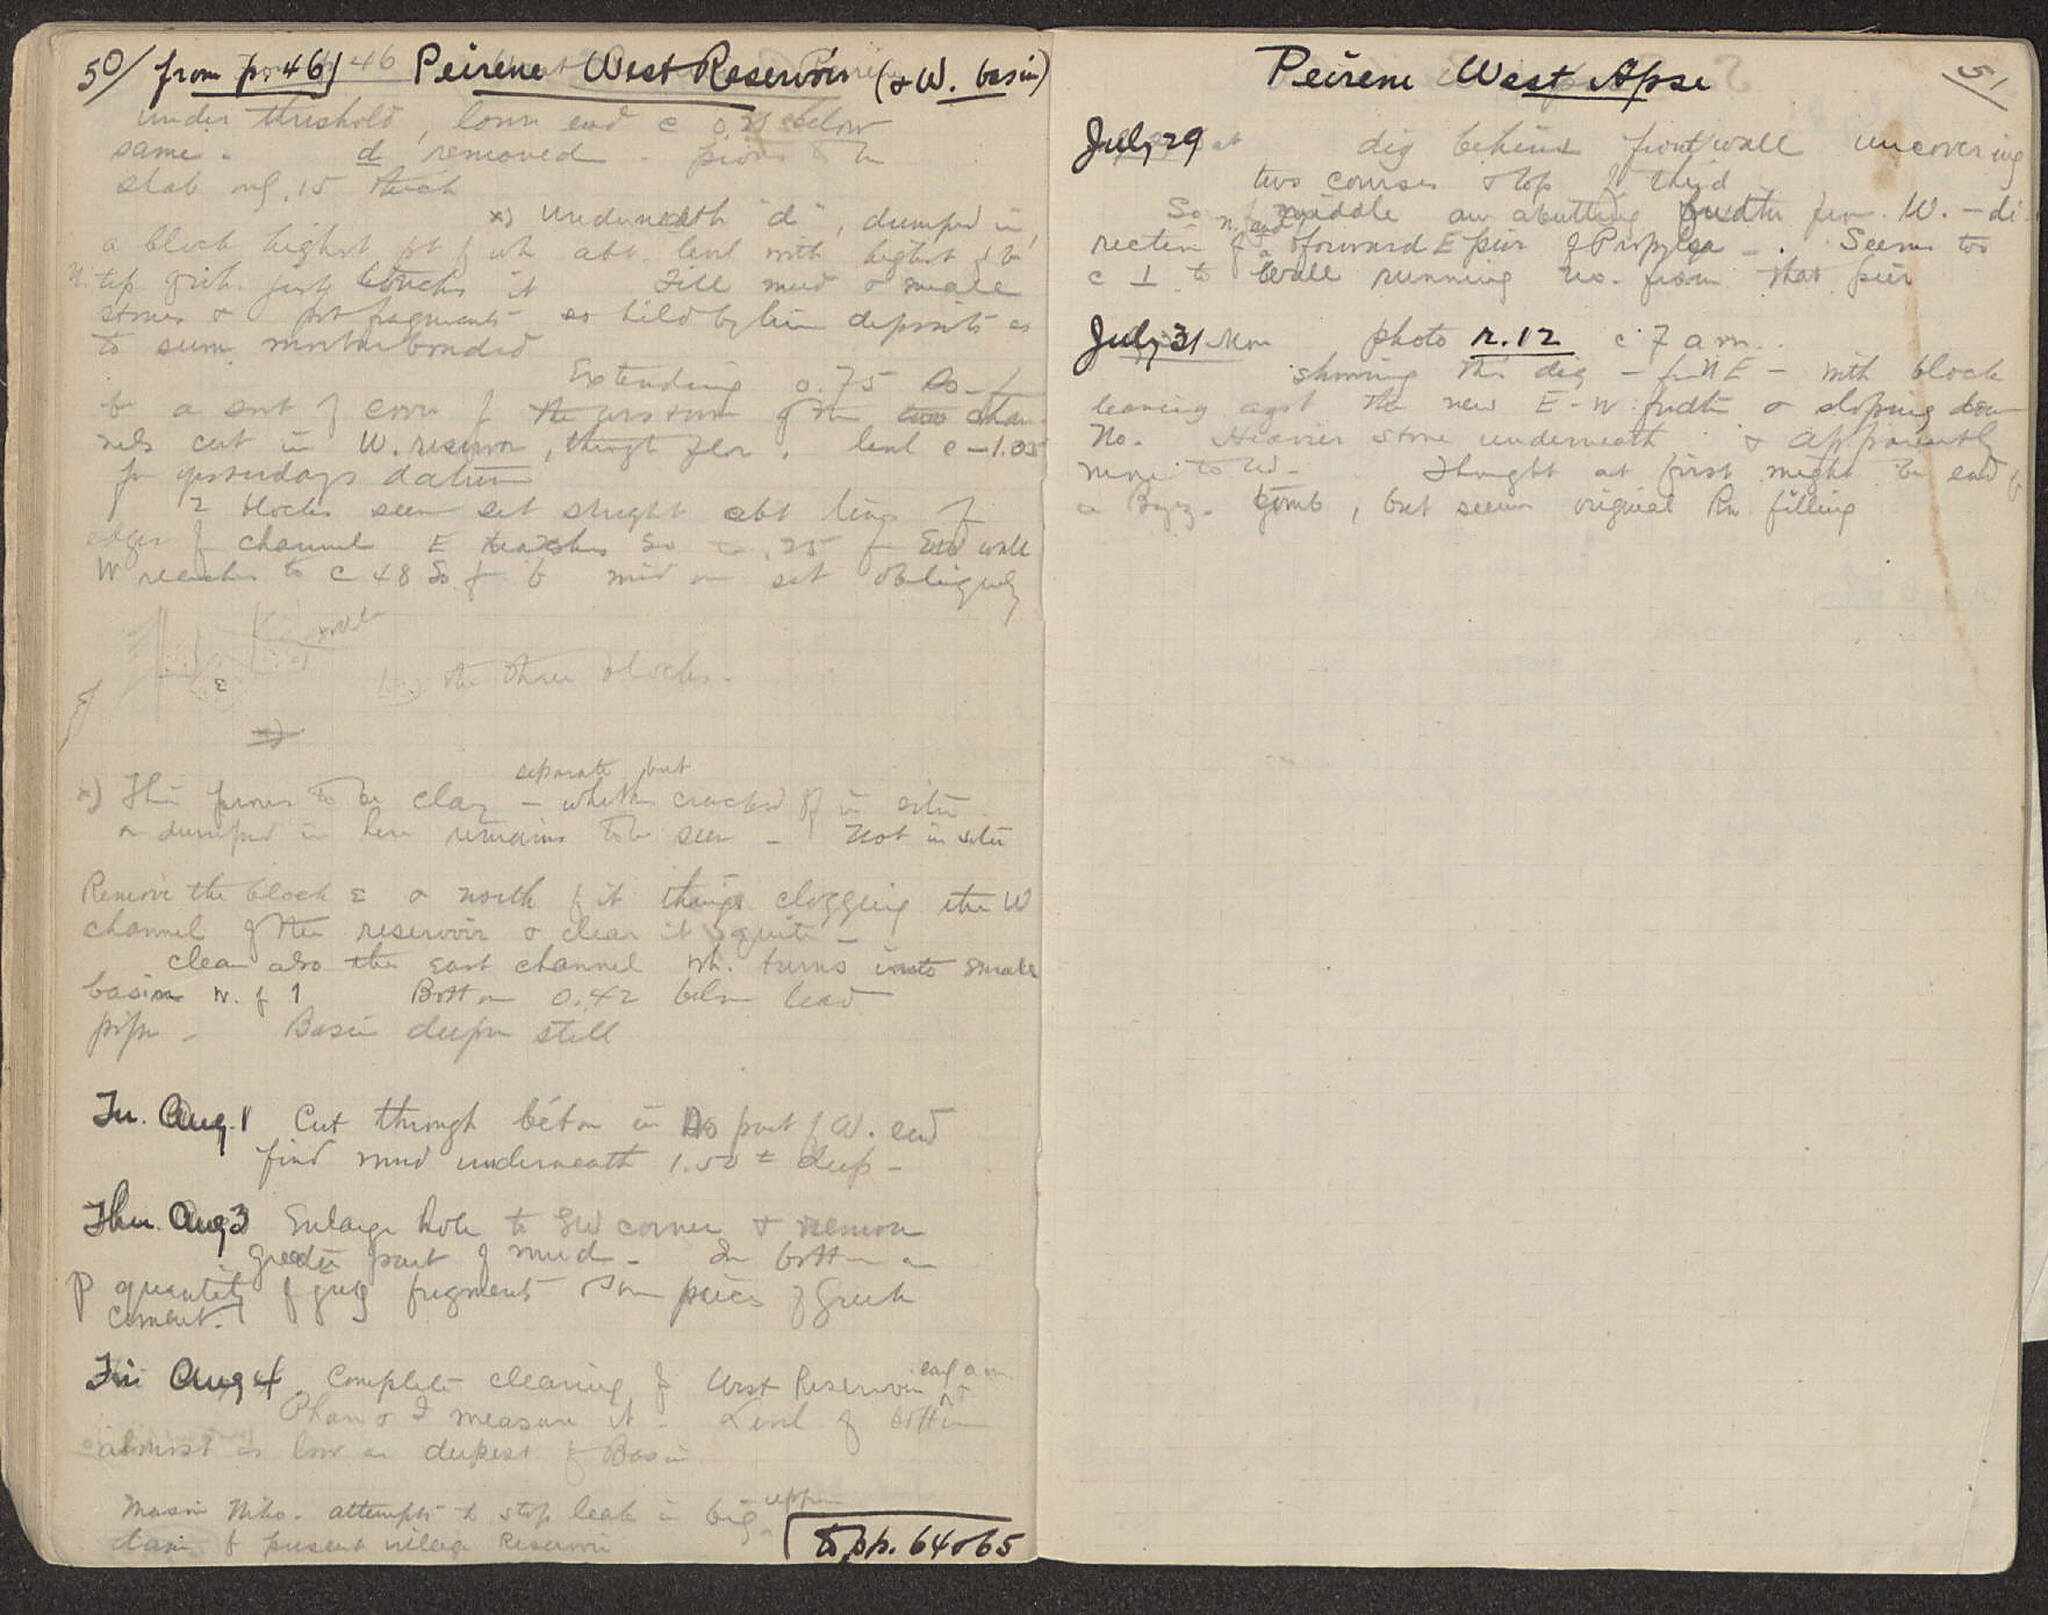 50/ from p. 46 Peirene West Reservoir (& W. basin)
under threshold, lower end c 0.21 below
same - d removed - proves to be
slab only .15 thick
x) Underneath "d", dumped in
a block highest pt of wh abt. level with highest of b
tip just touches it Fill mud & small
stones & pot fragments so held by lime deposits as
to seem mortar bonded
Extending 0.75 So. f
b a sort of cover f the two chan-
nels cut in W. reservoir, through floor, level c -1.05
fr yesterdays datum
2 blocks seem set straight abt line of
edges of channel E reaches So to .25 fr End wall
W reaches to c 48 So. of b mid one set obliquely
ε the three blocks.
x)
separate but
x) This proves to be clay - whether cracked off in situ
or dumped in here remains to be seen - Not in situ
Remove the block ε & north of it things clogging the W
channel of the reservoir & clear it quite -
clear also the east channel wh. turns into small
basin N. of 1 Bottom 0.42 below lead
pipe - Basin deeper still
Tu. Aug. 1 Cut through béton in No part of W. end
find mud underneath 1.50 ± deep -
Thu. Aug 3 Enlarge hole to SW corner & remove
greater part of mud - In bottom a
P quantity of jug fragments & some pieces of Greek
cement.
Fri Aug 4 Complete clearing of West Reservoir early a m.
& I measure it - Level of bottom
almost as low as deepest of Basin
Mason Niko. attempts to stop leak in big upper
basin of present village Reservoir
to pp. 64 & 65
Peirene West Apse 51
July 29 dig behind front wall uncovering
two courses & top of third
So of middle an abutting fndtn fr W. - di-
rection of n. end of forward E pier of Propylaea -. Seems to
c ⊥ to wall running no. from that pier
July 31 Mon photo r. 12 c 7 a m.
showing this dig - fr NE - with block
leaning agst the new E-W fndtn & sloping down
No. Heavier stone underneath & apparently
none to W - Thought at first might be end of
a Byz. tomb, but seems original Rn filling